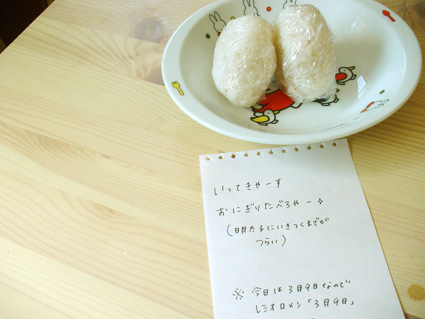 いってきやーす
おにぎりたべろやー
(明たよにいきつくまでが
つらい)
※ 今日は3月9日なので
レミオロメン「3月9日」